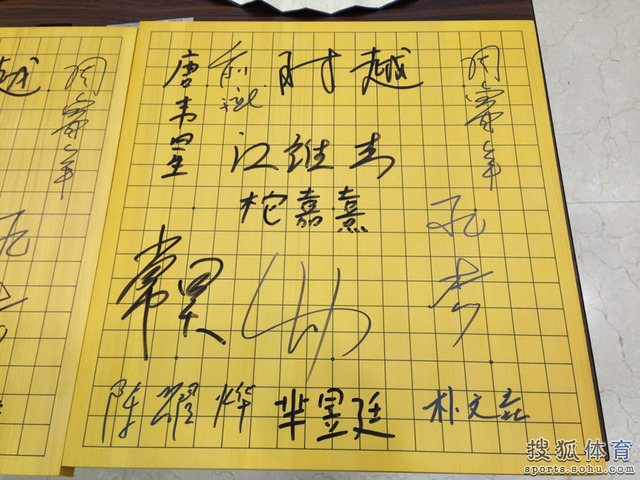 越
周睿羊
唐韦星
俞斌
时越
周睿羊
江维杰
柁嘉熹
孔杰
常昊
陈耀烨
芈昱廷
朴文垚
搜狐体育
sports.sohu.com